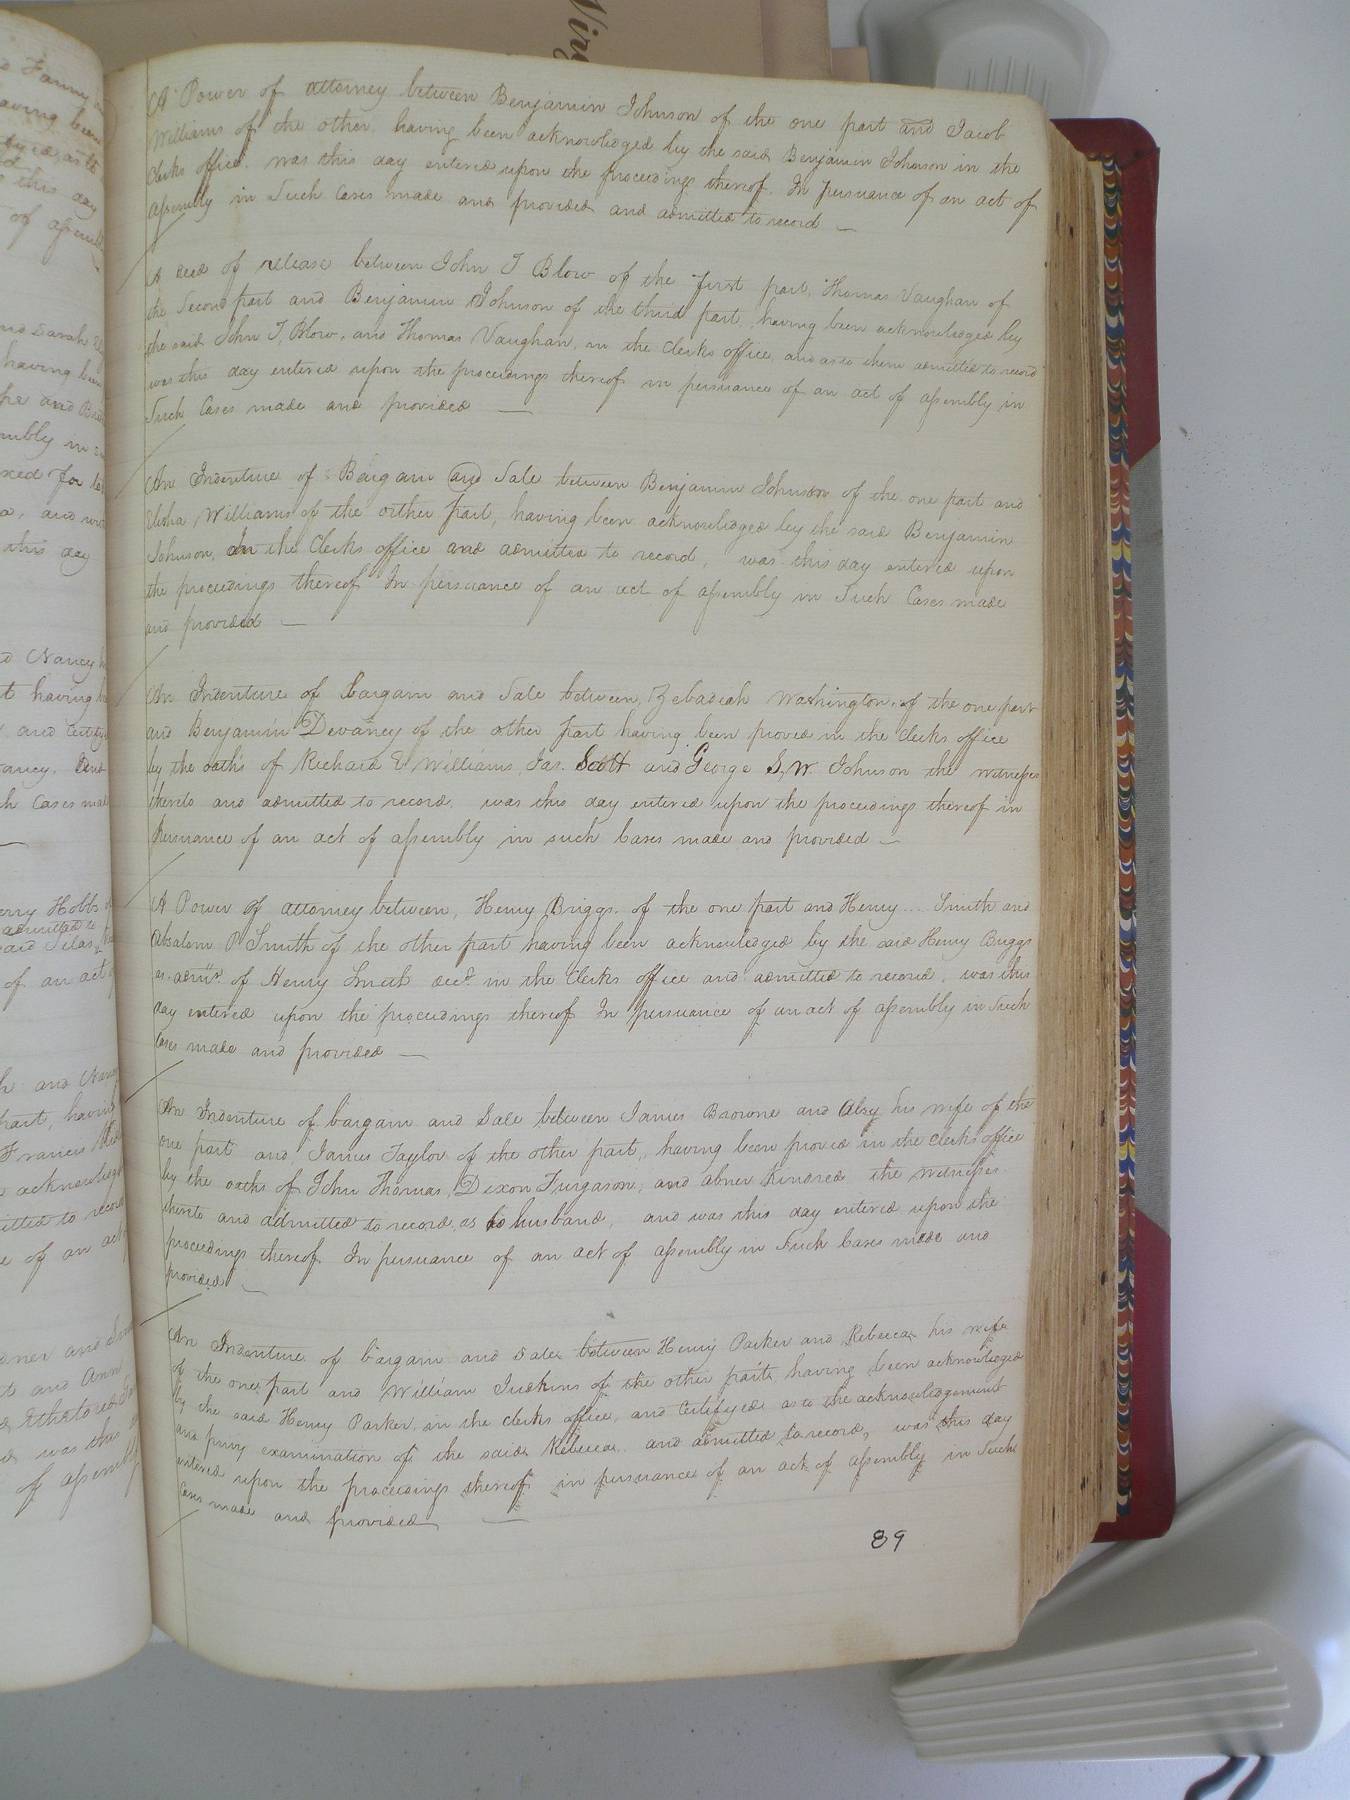 A Power of attorney between Benjamin Johnson of the one part and Jacob
Williams of the other having been acknowledged by the said Benjamin Johnson in the
clerks office. was this day entered upon the proceedings thereof. In persuance of an act of
assembly in Such Cases made and provided and admitted to record —
A deed of release between John T Blow of the first part, Thomas Vaughan of
the Second part and Benjamin Johnson of the third part, having been acknowledged by
the said John T, Blow, and Thomas Vaughan, in the clerks office, and as to them admitted to record
was this day entered upon the proceedings thereof in persuance of an act of assembly in
Such Cases made and provided —
An Indenture of Bargain and Sale between Benjamin Johnson of the one part and
Elisha Williams of the oither part, having been acknowledged by the said Benjamin
Johnson, In the Clerks office and admitted to record, was this day entered upon
the proceedings thereof In persuance of an act of assembly in Such Cases made
and provided —
An Indenture of bargain and Sale between, Zebadiah Washington, of the one part
and Benjamin Devaney of the other part having been proved in the clerks office
by the oaths of Richard E Williams, Jas. Scott and George S, W. Johnson the witnesses
thereto and admitted to record. was this day entered upon the proceedings thereof in
Persuance of an act of assembly in such Cases made and provided —
A Power of attorney between, Henry Briggs. of the one part and Henry .... Smith and
Absalom P Smith of the other part having been acknowledged by the said Henry Briggs
as. admr. of Henry Smith decd. in the Clerks office and admitted to record, was this
day entered upon the proceedings thereof In persuance of an act of assembly in Such
Cases made and provided —
An Indenture of bargain and Sale between James Browne and Alsey his wife of the
one part and James Taylor of the other part, having been proved in the clerks office
by the oaths of John Thomas, Dixon Furgason, and abner Kindred the witnesses
thereto and admitted to record, as to husband, and was this day entered upon the
proceedings thereof. In persuance of an act of assembly in Such Cases made and
provided —
An Indenture of bargain and Sale between Henry Parker and Rebecca his wife
of the one part and William Judkins of the other part having been acknowledged
by the said Henry Parker. in the clerks office, and Certifyed as to the acknowledgement
and privy examination of the said Rebecca. and admitted to record, was this day
entered upon the proceedings thereof in persuance of an act of assembly in Such
Cases made and provided —
89